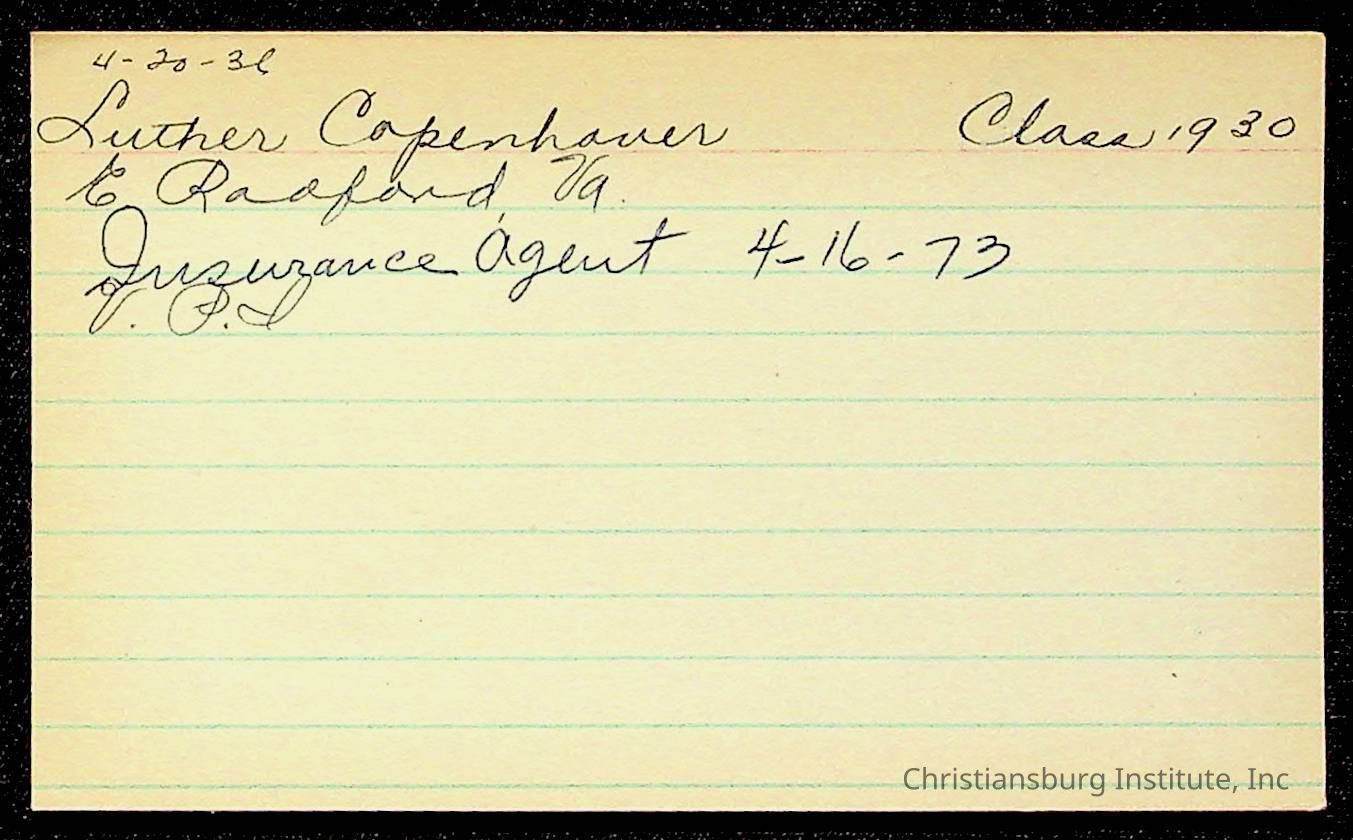 4-20-36
Luther Copenhaver Class 1930
E Radford, Va.
Insurance Agent 4-16-73
V. P. I
Christiansburg Institute, Inc